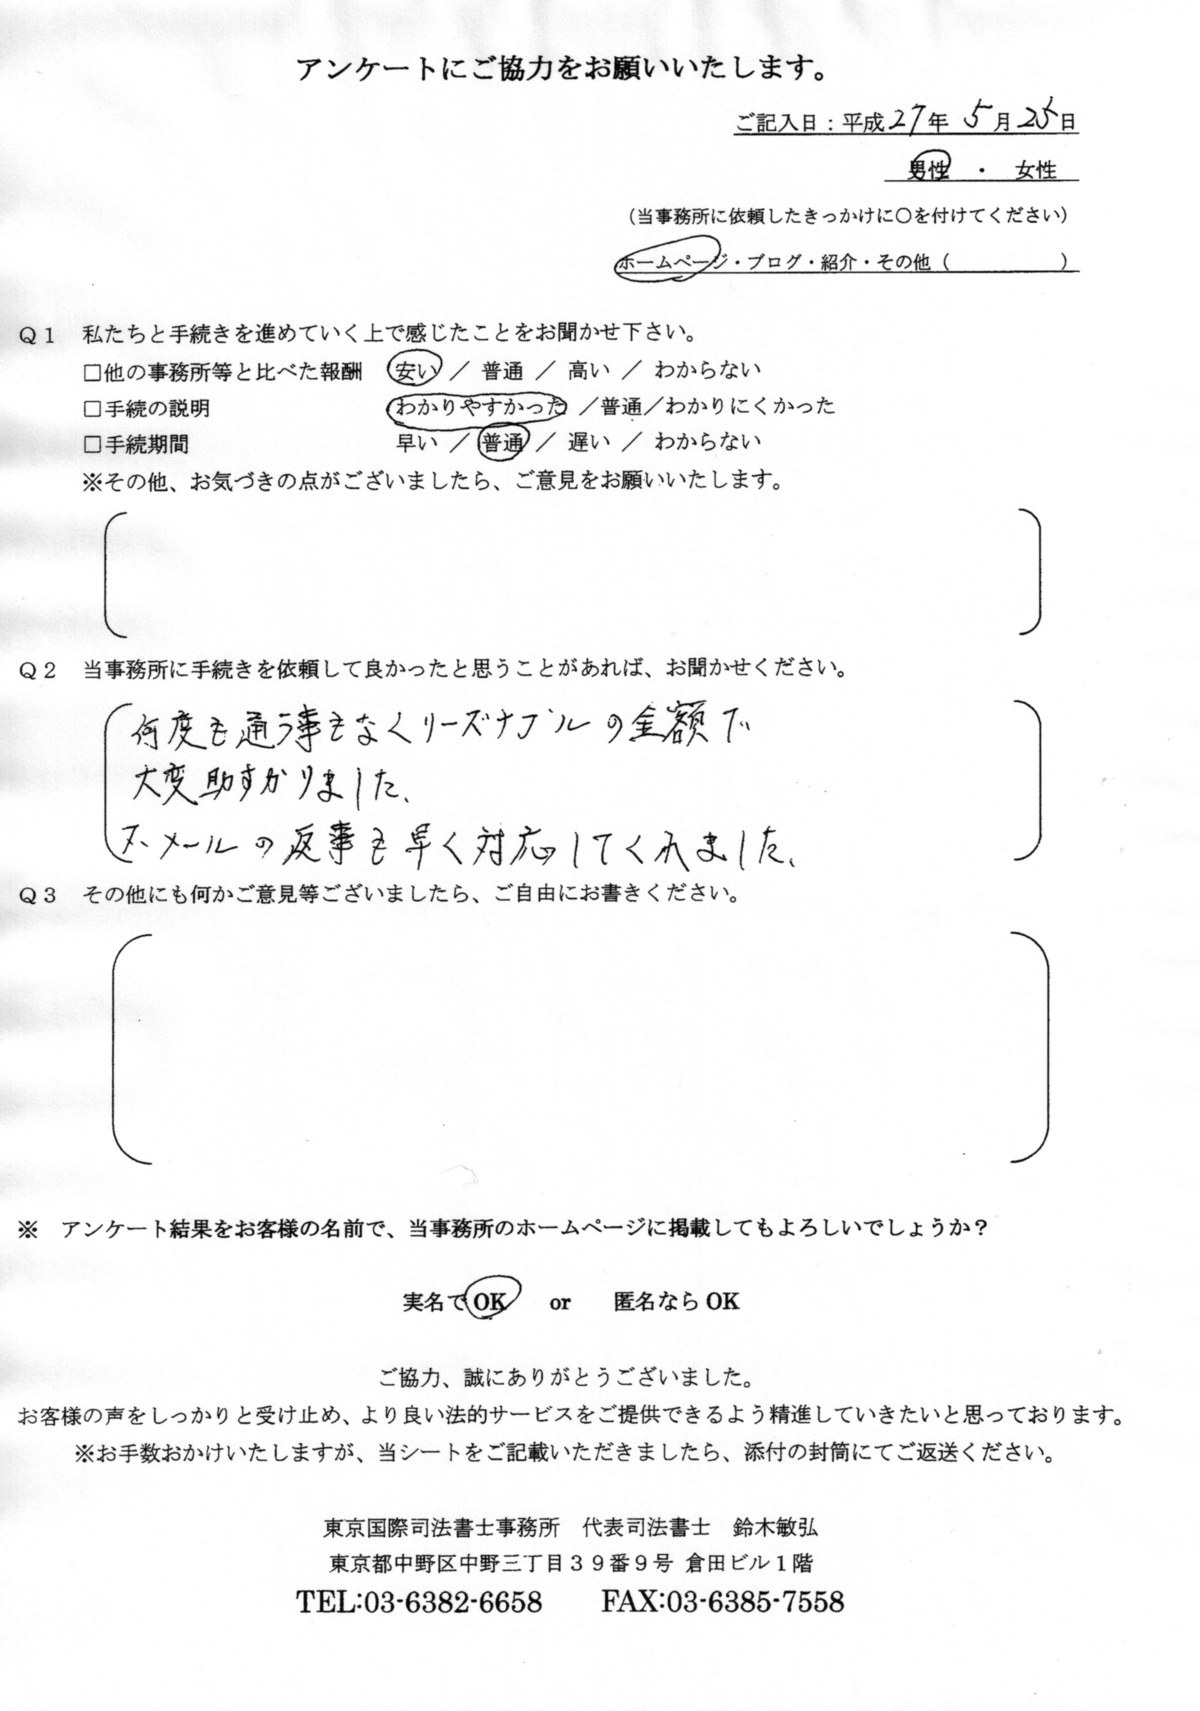 アンケートにご協力をお願いいたします。
ご記入日：平成27年 5月25日
男性 ・ 女性
（当事務所に依頼したきっかけに○を付けてください）
ホームページ・ブログ・紹介・その他（　　　　　）
Ｑ１ 私たちと手続きを進めていく上で感じたことをお聞かせ下さい。
□他の事務所等と比べた報酬 安い ／ 普通 ／ 高い ／ わからない
□手続の説明 わかりやすかった ／普通／わかりにくかった
□手続期間 早い ／ 普通 ／ 遅い ／ わからない
※その他、お気づきの点がございましたら、ご意見をお願いいたします。
Ｑ２ 当事務所に手続きを依頼して良かったと思うことがあれば、お聞かせください。
何度も通う事もなくリーズナブルの金額で
大変助すかりました、
又、メールの返事も早く対応してくれました、
Ｑ３ その他にも何かご意見等ございましたら、ご自由にお書きください。
※ アンケート結果をお客様の名前で、当事務所のホームページに掲載してもよろしいでしょうか？
実名でOK or 匿名ならOK
ご協力、誠にありがとうございました。
お客様の声をしっかりと受け止め、より良い法的サービスをご提供できるよう精進していきたいと思っております。
※お手数おかけいたしますが、当シートをご記載いただきましたら、添付の封筒にてご返送ください。
東京国際司法書士事務所 代表司法書士 鈴木敏弘
東京都中野区中野三丁目３９番９号 倉田ビル１階
TEL:03-6382-6658 FAX:03-6385-7558